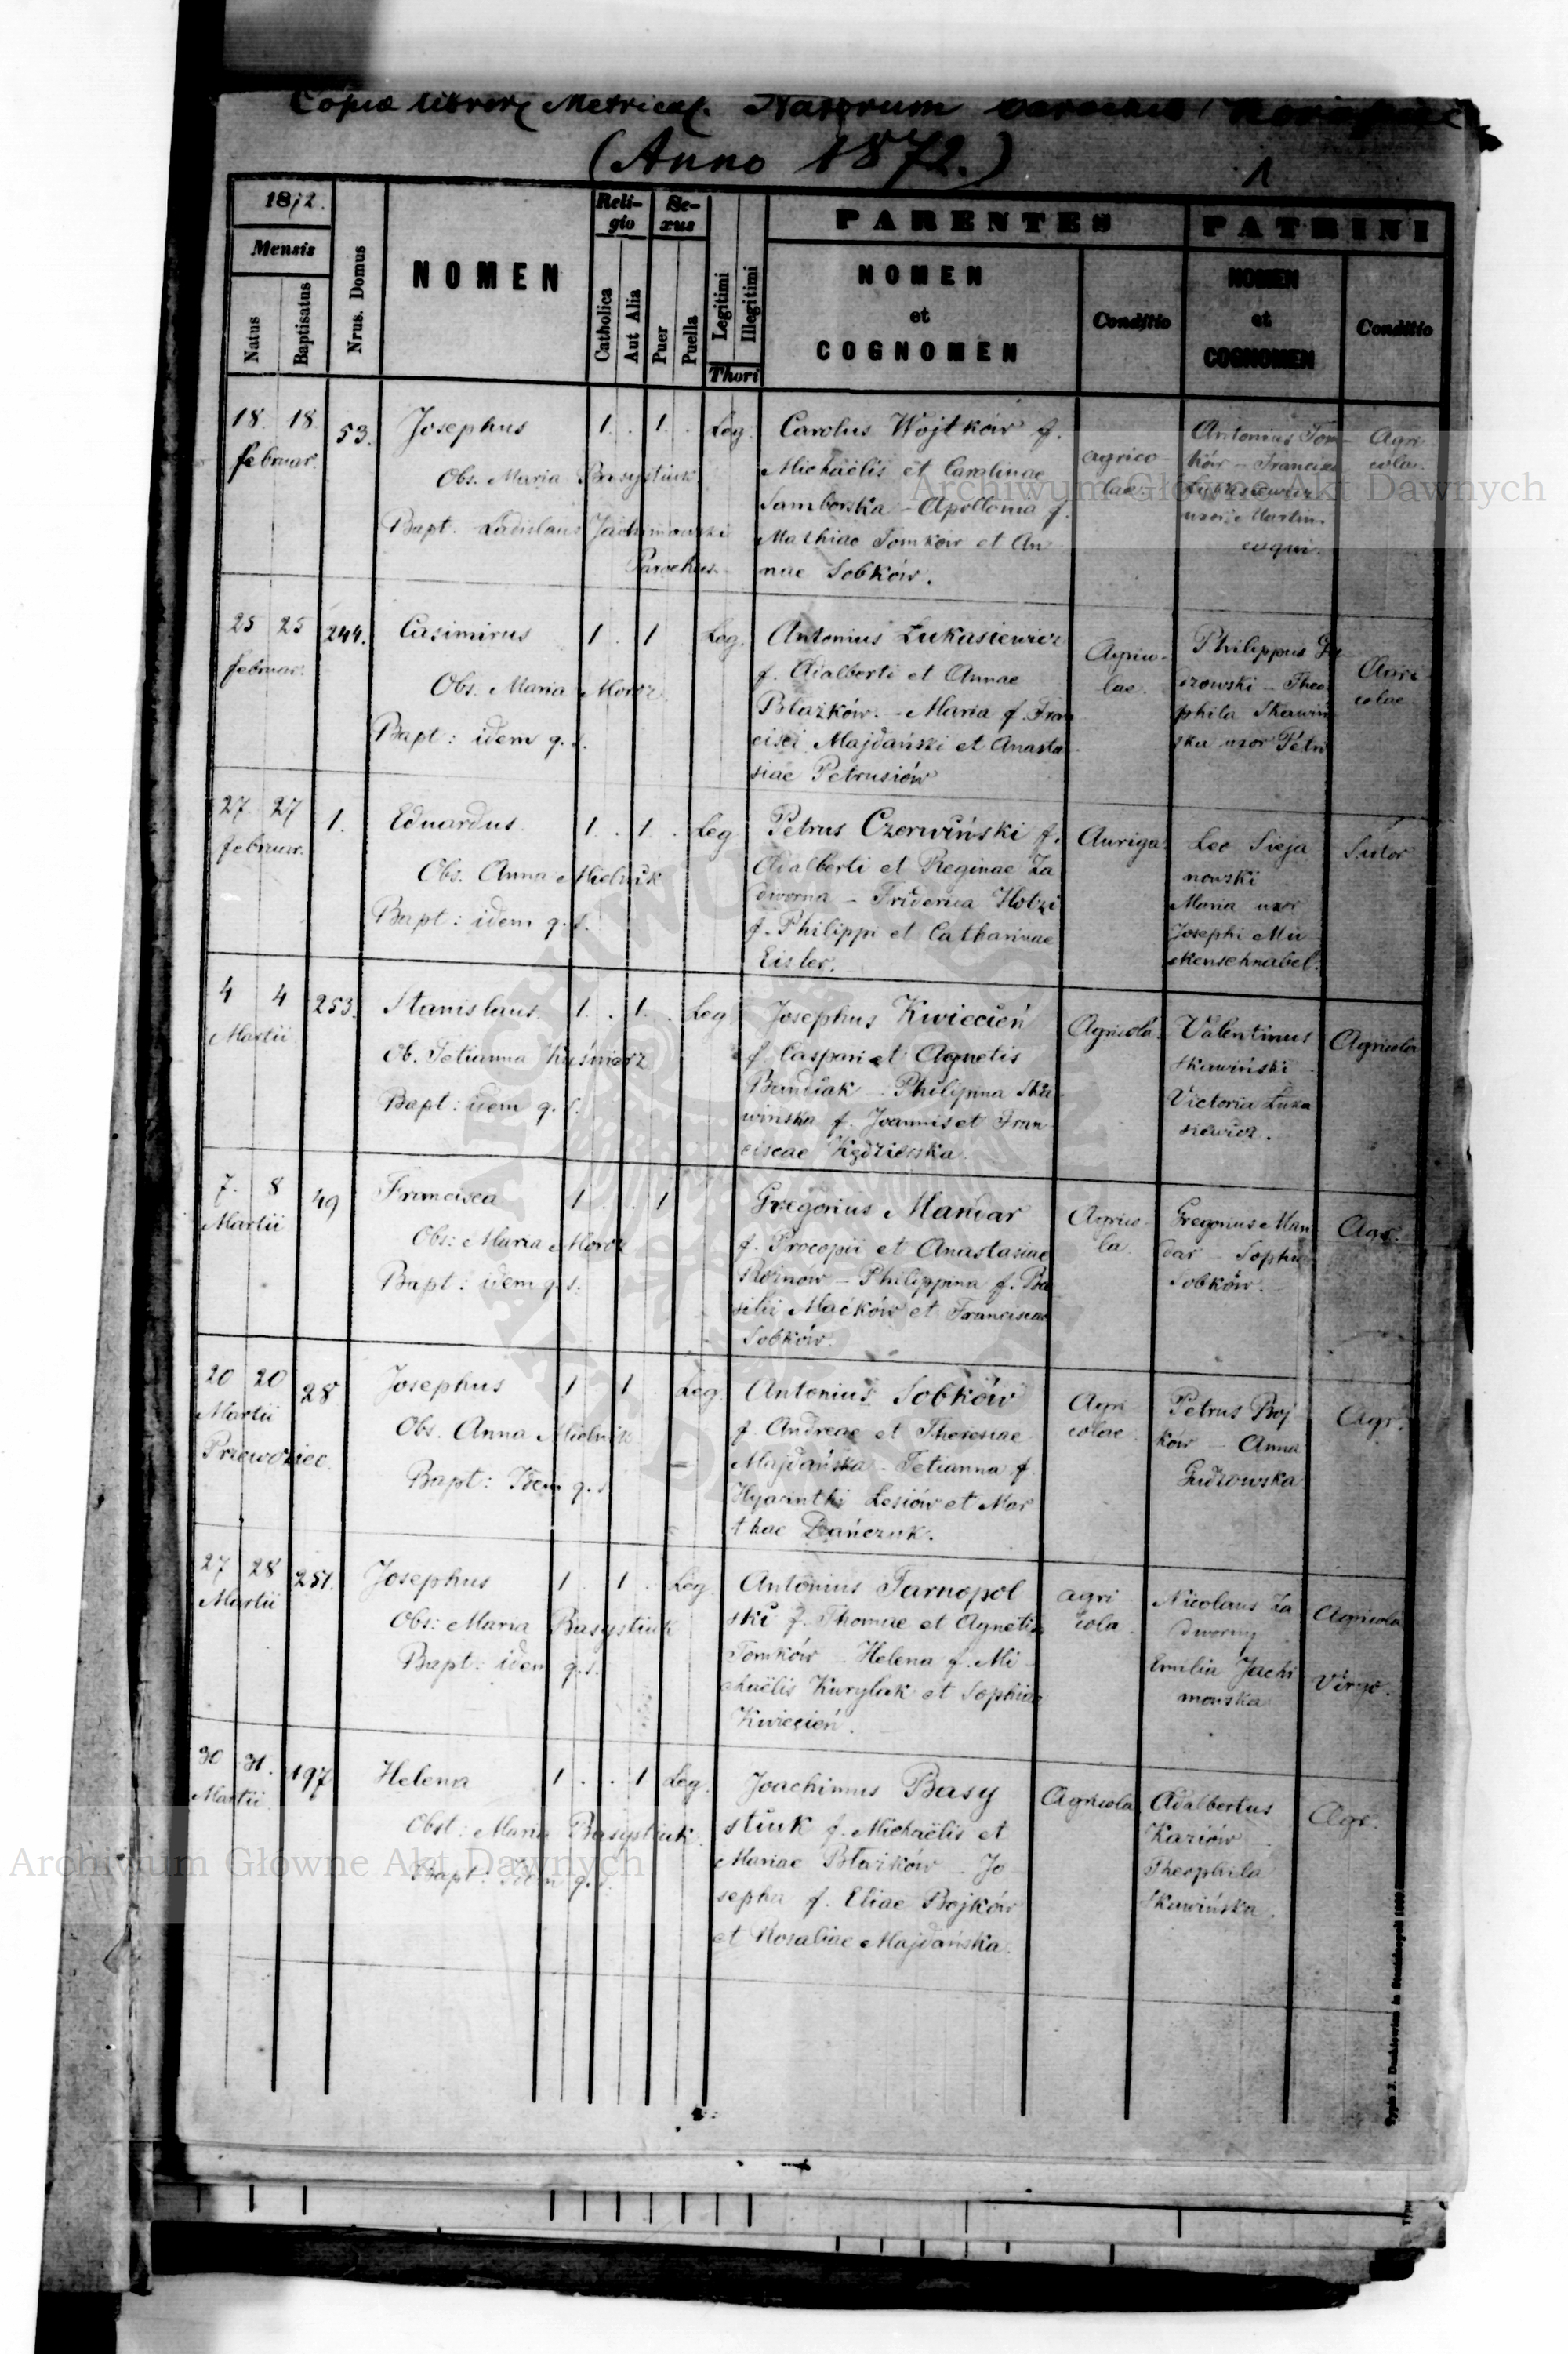 Copia libror. Metrical. Natorum
(Anno 1872.)
1
1872.
Mensis
Natus
Baptisatus
Nrus. Domus
NOMEN
Reli-
gio
Catholica
Aut Alia
Se-
xus
Puer
Puella
Legitimi
Illegitimi
Thori
PARENTES
NOMEN
et
COGNOMEN
Conditio
PATRINI
NOMEN
et
COGNOMEN
Conditio
18. 18. 53. Josephus 1. . 1. . Leg.
februar.
Obs. Maria Basystiuk
Bapt. Ladislaus Jachimowski
Parochus.
Carolus Wojtków f.
Michaëlis et Carolinae
Samborska - Apollonia f.
Mathiae Tomków et An-
nae Sobków.
agrico-
lae
Antonius Tom-
ków - Francisca
Łukasiewicz
uxor Martini
Agri-
colae
25 25 244. Casimirus 1 . 1 Leg.
februar.
Obs. Maria Moroz
Bapt: idem q. s.
Antonius Łukasiewicz
f. Adalberti et Annae
Błażków. - Maria f. Fran
cisci Majdański et Anasta-
siae Petrusiów
Agrico-
lae.
Philippus Gu
drowski - Theo
phila Skawiń
ska uxor Petri
Agri-
colae
27 27 1. Eduardus. 1. . 1. . Leg
februar.
Obs. Anna Mielnik
Bapt: idem q. s.
Petrus Czerwiński f.
Adalberti et Reginae Za
dworna - Friderica Hotzi
f. Philippi et Catharinae
Eisler.
Auriga.
Leo Sieja
nowski
Maria uxor
Josephi Mü
ckenschnabel.
Sutor
4 4 253. Stanislaus. 1. . 1. . Leg.
Martii
Ob. Tetianna Kuśnierz
Bapt: idem q. s.
Josephus Kwiecień
f. Caspari et Agnetis
Bundiak - Philippina Ska
winska f. Joannis et Fran-
ciscae Kędzierska.
Agricola.
Valentinus
Skawiński -
Victoria Łuka
siewicz.
Agricolae
7. 8 49 Francisca 1 . . 1
Martii
Obs: Maria Moroz
Bapt: idem q. s.
Gregorius Mandar
f. Procopii et Anastasiae
Rożnów - Philippina f. Ba
silii Maćków et Franciscae
Sobków.
Agrico-
la.
Gregorius Man
dar - Sophia
Sobków.
Agr.
20 20 28 Josephus 1 1 . Leg
Martii
Przewoziec.
Obs. Anna Mielnik
Bapt: Idem q. s.
Antonius Sobków
f. Andreae et Theresiae
Majdańska - Tetianna f.
Hyacinthi Lesiów et Mar
thae Dańczuk.
Agri
colae
Petrus Boj
ków - Anna
Gudrowska
Agr.
27 28 251. Josephus 1 . 1 . Leg.
Martii
Obs: Maria Basystiuk
Bapt: idem q. s.
Antonius Tarnopol
ski f. Thomae et Agnetis
Tomków - Helena f. Mi-
chaëlis Kurylak et Sophiae
Kwiecień.
agri
cola
Nicolaus Za
dworny
Emilia Jachi
mowska
Agricola
Virgo.
30 31. 197 Helena 1 . . 1 Leg.
Martii
Obst: Maria Basystiuk.
Bapt: Idem q. s.
Joachimus Basy
stiuk f. Michaëlis et
Mariae Błażków - Jo
sepha f. Eliae Bojków
et Rosaliae Majdańska.
Agricola
Adalbertus
Kaziów -
Theophila
Skawińska.
Agr.
Archiwum Główne Akt Dawnych
Archiwum Główne Akt Dawnych